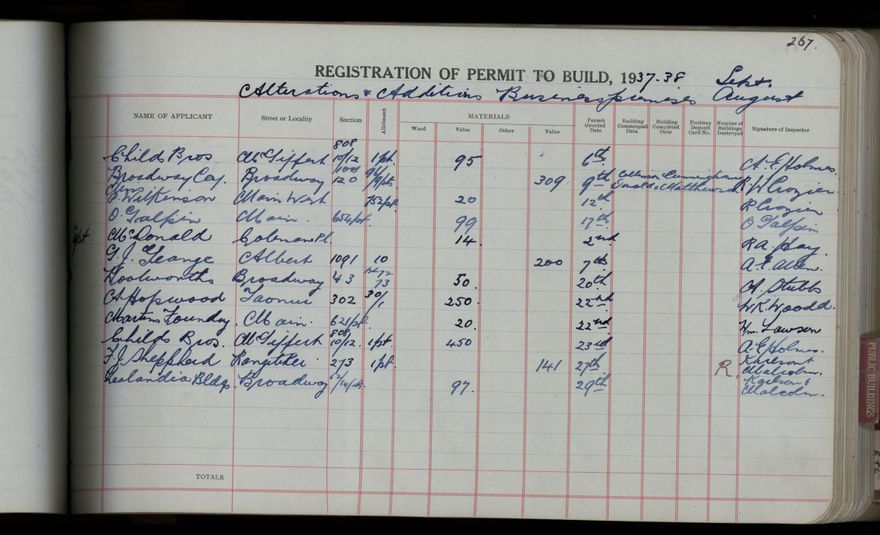 267.
REGISTRATION OF PERMIT TO BUILD, 1937-38 Sept.
Alterations & Additions Business premises August
NAME OF APPLICANT Street or Locality Section Allotment MATERIALS Permit Granted Date Building Commenced Date Building Completed Date Footway Deposit Card No. Number of Buildings Destroyed Signature of Inspector
Wood Value Other Value
808
Childs Bros McGiffert 10/12 1pt 95 6th A.E. Holmes.
Broadway Broadway 120 309 9th Coleman Cunningham Crozier
Wilkinson Main West 20 12th R Crozier
O. Galpin Main 99 17th O Galpin
Sept. McDonald Coleman Pl. 14. 2nd R A Hay.
G.J. Albert 1091 10 200 7th A.E. Allen.
Woolworths Broadway 43 73 50. 20th A. Stubbs
A Hopwood Taonui 302 250. 22nd W.R. Woodd.
Martins Foundry. Main. 20. 22nd Wm. Lawson
808
Childs Bros. McGiffert 10/12. 1pt 450 23rd A.E. Holmes.
F.J. Sheppherd Rangitikei 273 1pt. 141 27th R. Karlson & Malcolm.
Zealandia Bldgs. Broadway 97. 29th Karlson & Malcolm.
TOTALS
PUBLIC BUILDINGS